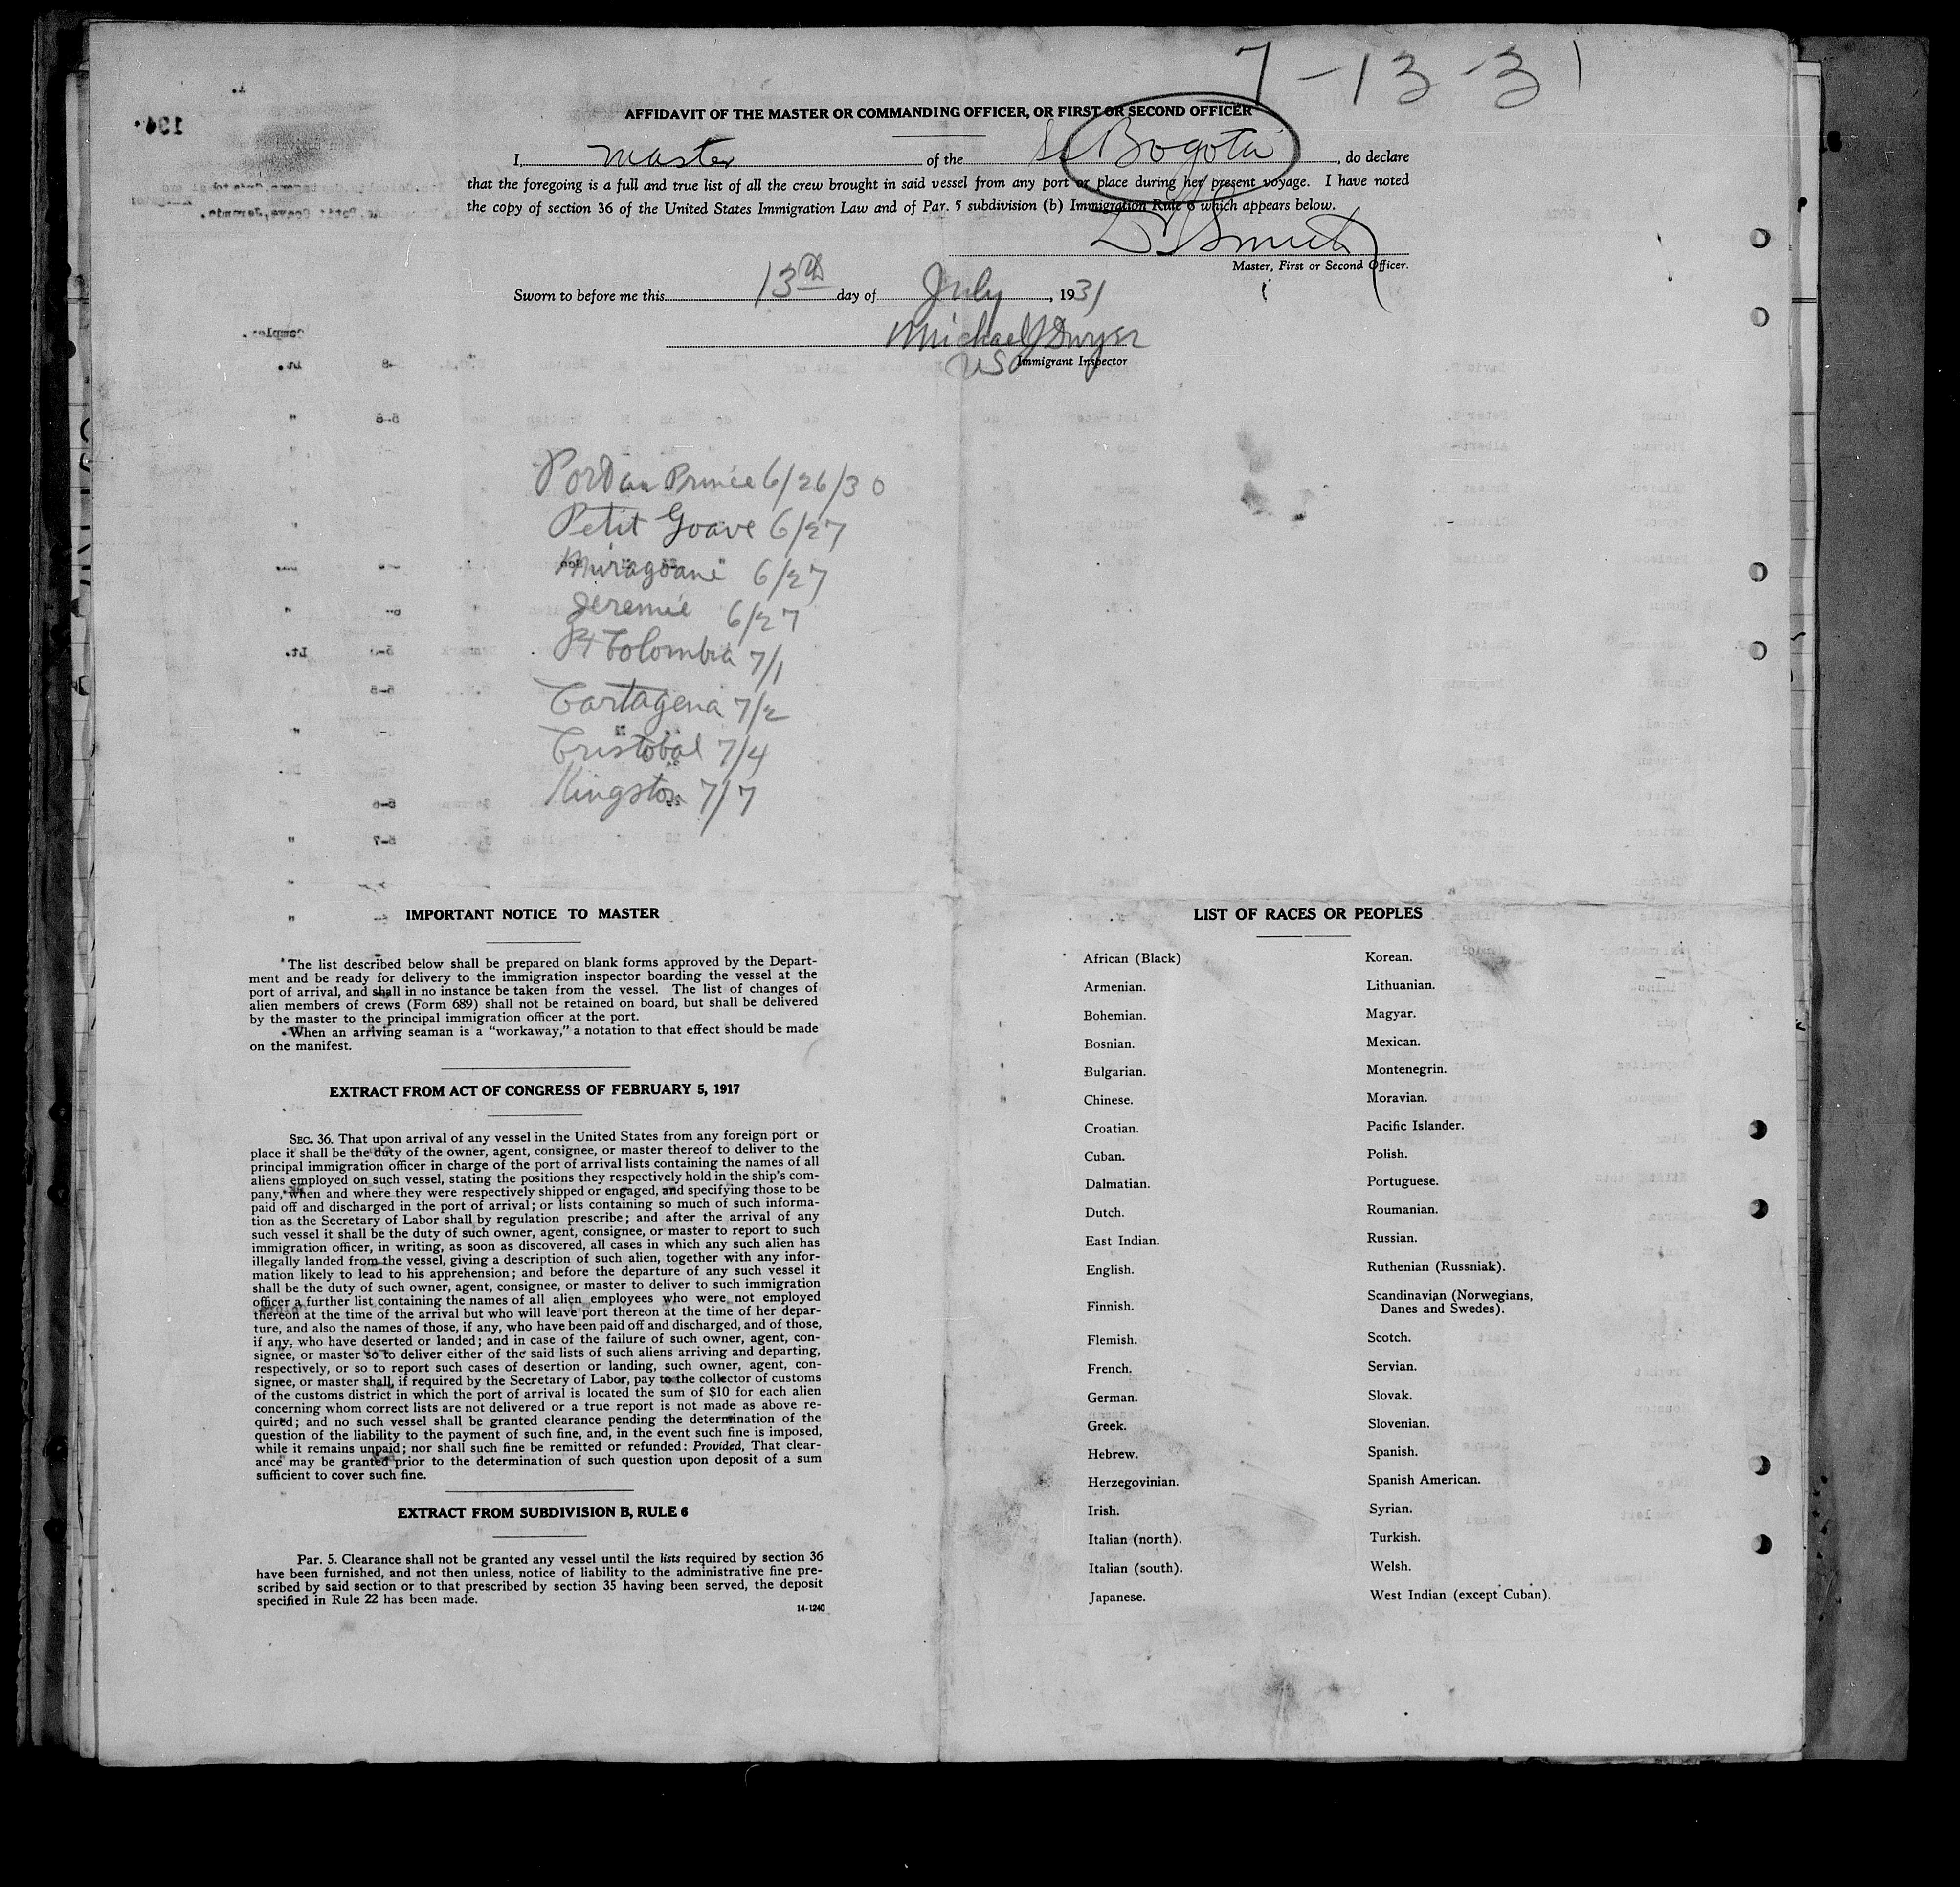 7-13-31
AFFIDAVIT OF THE MASTER OR COMMANDING OFFICER, OR FIRST OR SECOND OFFICER
I, master of the SS Bogota, do declare
that the foregoing is a full and true list of all the crew brought in said vessel from any port or place during her present voyage. I have noted
the copy of section 36 of the United States Immigration Law and of Par. 5 subdivision (b) Immigration Rule 6 which appears below.
Smith
Master, First or Second Officer.
Sworn to before me this 13th day of July, 1931
Michael J Dwyer
US Immigrant Inspector
Port au Prince 6/26/30
Petit Goave 6/27
Miragoane 6/27
Jeremie 6/27
Pt Colombia 7/1
Cartagena 7/2
Cristobal 7/4
Kingston 7/7
IMPORTANT NOTICE TO MASTER
The list described below shall be prepared on blank forms approved by the Depart-
ment and be ready for delivery to the immigration inspector boarding the vessel at the
port of arrival, and shall in no instance be taken from the vessel. The list of changes of
alien members of crews (Form 689) shall not be retained on board, but shall be delivered
by the master to the principal immigration officer at the port.
When an arriving seaman is a “workaway,” a notation to that effect should be made
on the manifest.
EXTRACT FROM ACT OF CONGRESS OF FEBRUARY 5, 1917
SEC. 36. That upon arrival of any vessel in the United States from any foreign port or
place it shall be the duty of the owner, agent, consignee, or master thereof to deliver to the
principal immigration officer in charge of the port of arrival lists containing the names of all
aliens employed on such vessel, stating the positions they respectively hold in the ship's com-
pany, when and where they were respectively shipped or engaged, and specifying those to be
paid off and discharged in the port of arrival; or lists containing so much of such informa-
tion as the Secretary of Labor shall by regulation prescribe; and after the arrival of any
such vessel it shall be the duty of such owner, agent, consignee, or master to report to such
immigration officer, in writing, as soon as discovered, all cases in which any such alien has
illegally landed from the vessel, giving a description of such alien, together with any infor-
mation likely to lead to his apprehension; and before the departure of any such vessel it
shall be the duty of such owner, agent, consignee, or master to deliver to such immigration
officer a further list containing the names of all alien employees who were not employed
thereon at the time of the arrival but who will leave port thereon at the time of her depar-
ture, and also the names of those, if any, who have been paid off and discharged, and of those,
if any, who have deserted or landed; and in case of the failure of such owner, agent, con-
signee, or master so to deliver either of the said lists of such aliens arriving and departing,
respectively, or so to report such cases of desertion or landing, such owner, agent, con-
signee, or master shall, if required by the Secretary of Labor, pay to the collector of customs
of the customs district in which the port of arrival is located the sum of $10 for each alien
concerning whom correct lists are not delivered or a true report is not made as above re-
quired; and no such vessel shall be granted clearance pending the determination of the
question of the liability to the payment of such fine, and, in the event such fine is imposed,
while it remains unpaid; nor shall such fine be remitted or refunded: Provided, That clear-
ance may be granted prior to the determination of such question upon deposit of a sum
sufficient to cover such fine.
EXTRACT FROM SUBDIVISION B, RULE 6
Par. 5. Clearance shall not be granted any vessel until the lists required by section 36
have been furnished, and not then unless, notice of liability to the administrative fine pre-
scribed by said section or to that prescribed by section 35 having been served, the deposit
specified in Rule 22 has been made.
14-1240
LIST OF RACES OR PEOPLES
African (Black)
Armenian.
Bohemian.
Bosnian.
Bulgarian.
Chinese.
Croatian.
Cuban.
Dalmatian.
Dutch.
East Indian.
English.
Finnish.
Flemish.
French.
German.
Greek.
Hebrew.
Herzegovinian.
Irish.
Italian (north).
Italian (south).
Japanese.
Korean.
Lithuanian.
Magyar.
Mexican.
Montenegrin.
Moravian.
Pacific Islander.
Polish.
Portuguese.
Roumanian.
Russian.
Ruthenian (Russniak).
Scandinavian (Norwegians,
Danes and Swedes).
Scotch.
Servian.
Slovak.
Slovenian.
Spanish.
Spanish American.
Syrian.
Turkish.
Welsh.
West Indian (except Cuban).